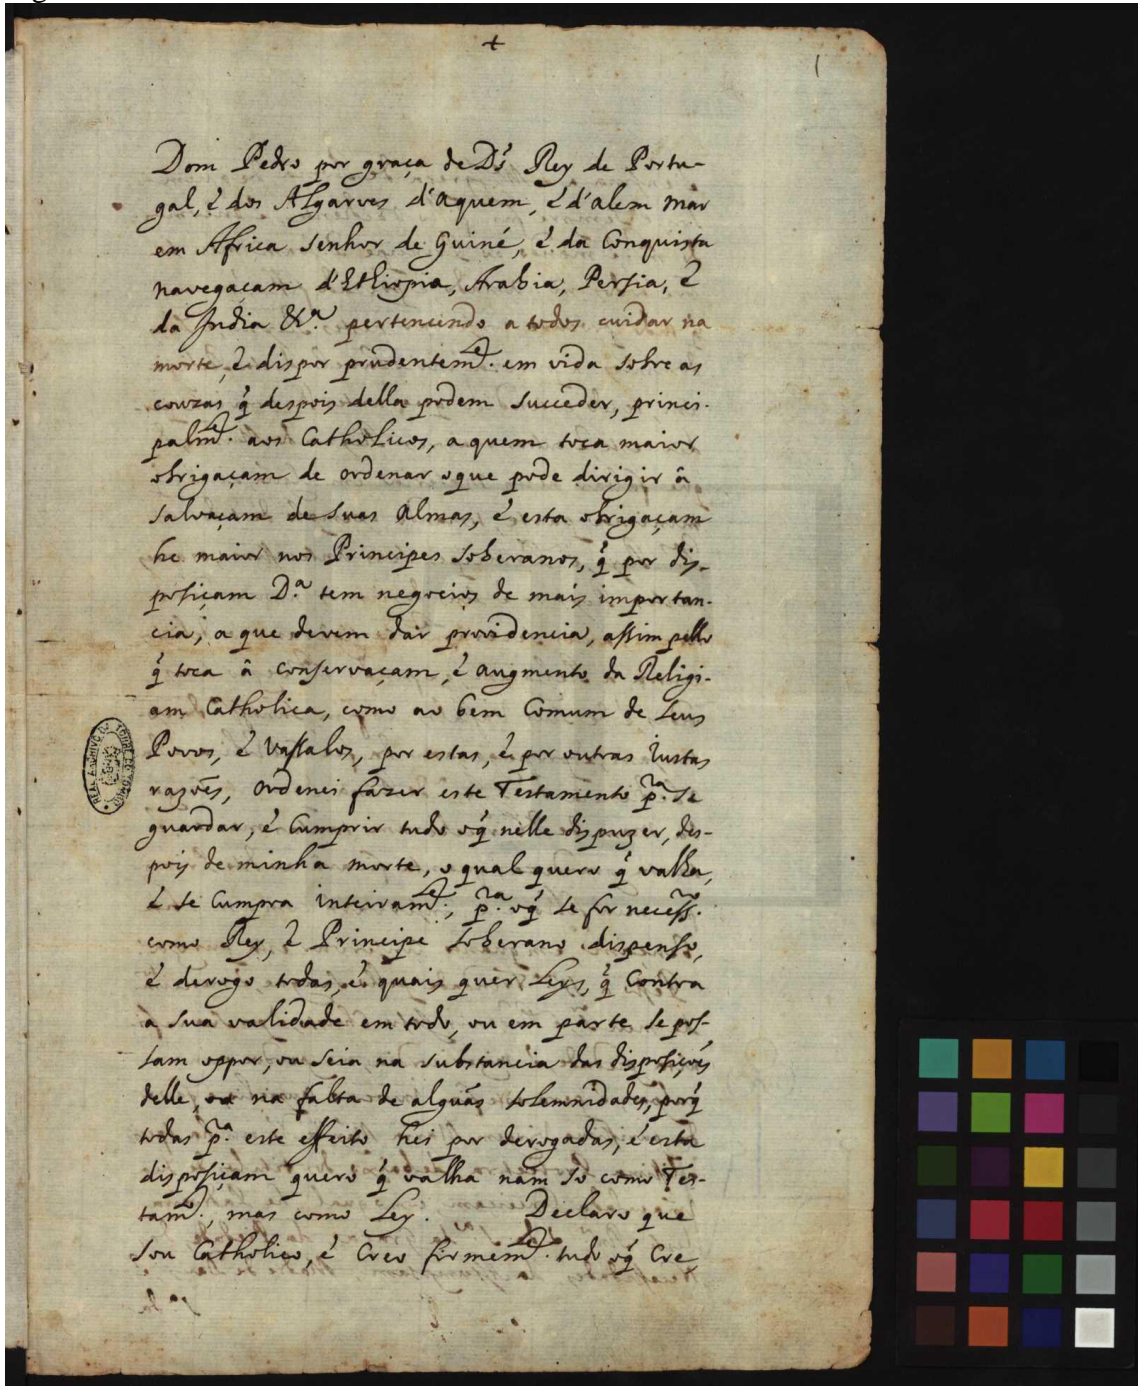 +
1
Dom Pedro por graça de D.s Rey de Portu-
gal, é dos Algarves d'aquem, é d'alem mar
em Africa Senhor de Guiné, é da Conquista
navegaçam d'Ethiopia, Arabia, Persia, é
da India &.ª pertencendo a todos cuidar na
morte, é dispor prudentem.te em vida sobre as
couzas q̃ despois della podem succeder, princi-
palm.te aos Catholicos, a quem toca maior
obrigaçam de ordenar oque pode dirigir â
salvaçam de suas Almas, é esta obrigaçam
he maior nos Principes Soberanos, q̃ por dis-
posiçam D.ª tem negocios de mais importan-
cia, a que devem dar providencia, assim pello
q̃ toca â conservaçam, é augmento da Religi-
am Catholica, como ao bem Comum de seus
Povos, é Vassalos, por estas, é por outras iustas
razoẽs, ordenei fazer este Testamento p.ra se
guardar, é Cumprir tudo oq̃ nelle dispuzer, des-
pois de minha morte, o qual quero q̃ valha,
é se Cumpra inteiram.te, p.ra oq̃ se for necess.ro
como Rey, é Principe Soberano dispenso,
é derogo todas, é quais quer Leys, q̃ Contra
a sua validade em todo, ou em parte se pos-
sam oppor, ou seia na substancia das disposiçoẽs
delle, ou na falta de alguãs solemnidades, porq̃
todas p.ra este effeito hei por derogadas, é esta
disposiçam quero q̃ valha nam so como Tes-
tam.to, mas como Ley. Declaro que
sou Catholico, é Creo firmem.te tudo oq̃ Cre,